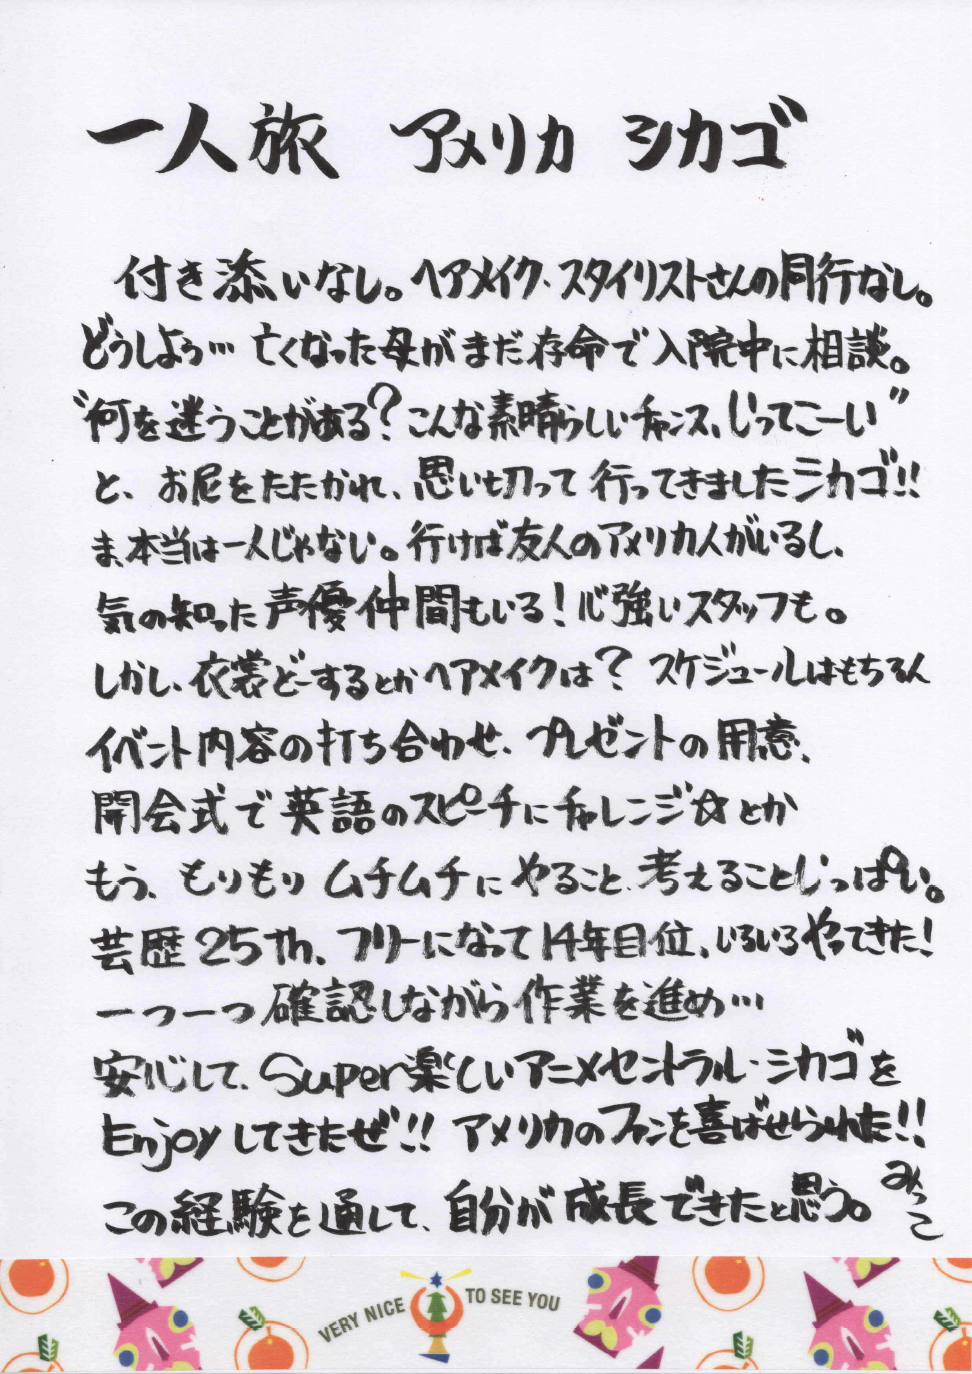 一人旅 アメリカ シカゴ
付き添いなし。ヘアメイク、スタイリストさんの同行なし。
どうしよう… 亡くなった母がまだ存命で入院中に相談。
“何を迷うことがある？こんな素晴らしいチャンス、いってこーい”
と、お尻をたたかれ、思い切って行ってきましたシカゴ!!
ま、本当は一人じゃない。行けば友人のアメリカ人がいるし、
気の知った声優仲間もいる！心強いスタッフも。
しかし、衣裳どーするとかヘアメイクは？スケジュールはもちろん
イベント内容の打ち合わせ、プレゼントの用意、
開会式で英語のスピーチにチャレンジ☆とか
もう、もりもりムチムチにやること、考えることいっぱい。
芸歴25th、フリーになって14年目位、いろいろやってきた！
一つ一つ確認しながら作業を進め…
安心して、Super楽しいアニメセントラル・シカゴを
Enjoyしてきたぜ!! アメリカのファンを喜ばせられた!!
この経験を通して、自分が成長できたと思う。みっこ
VERY NICE TO SEE YOU